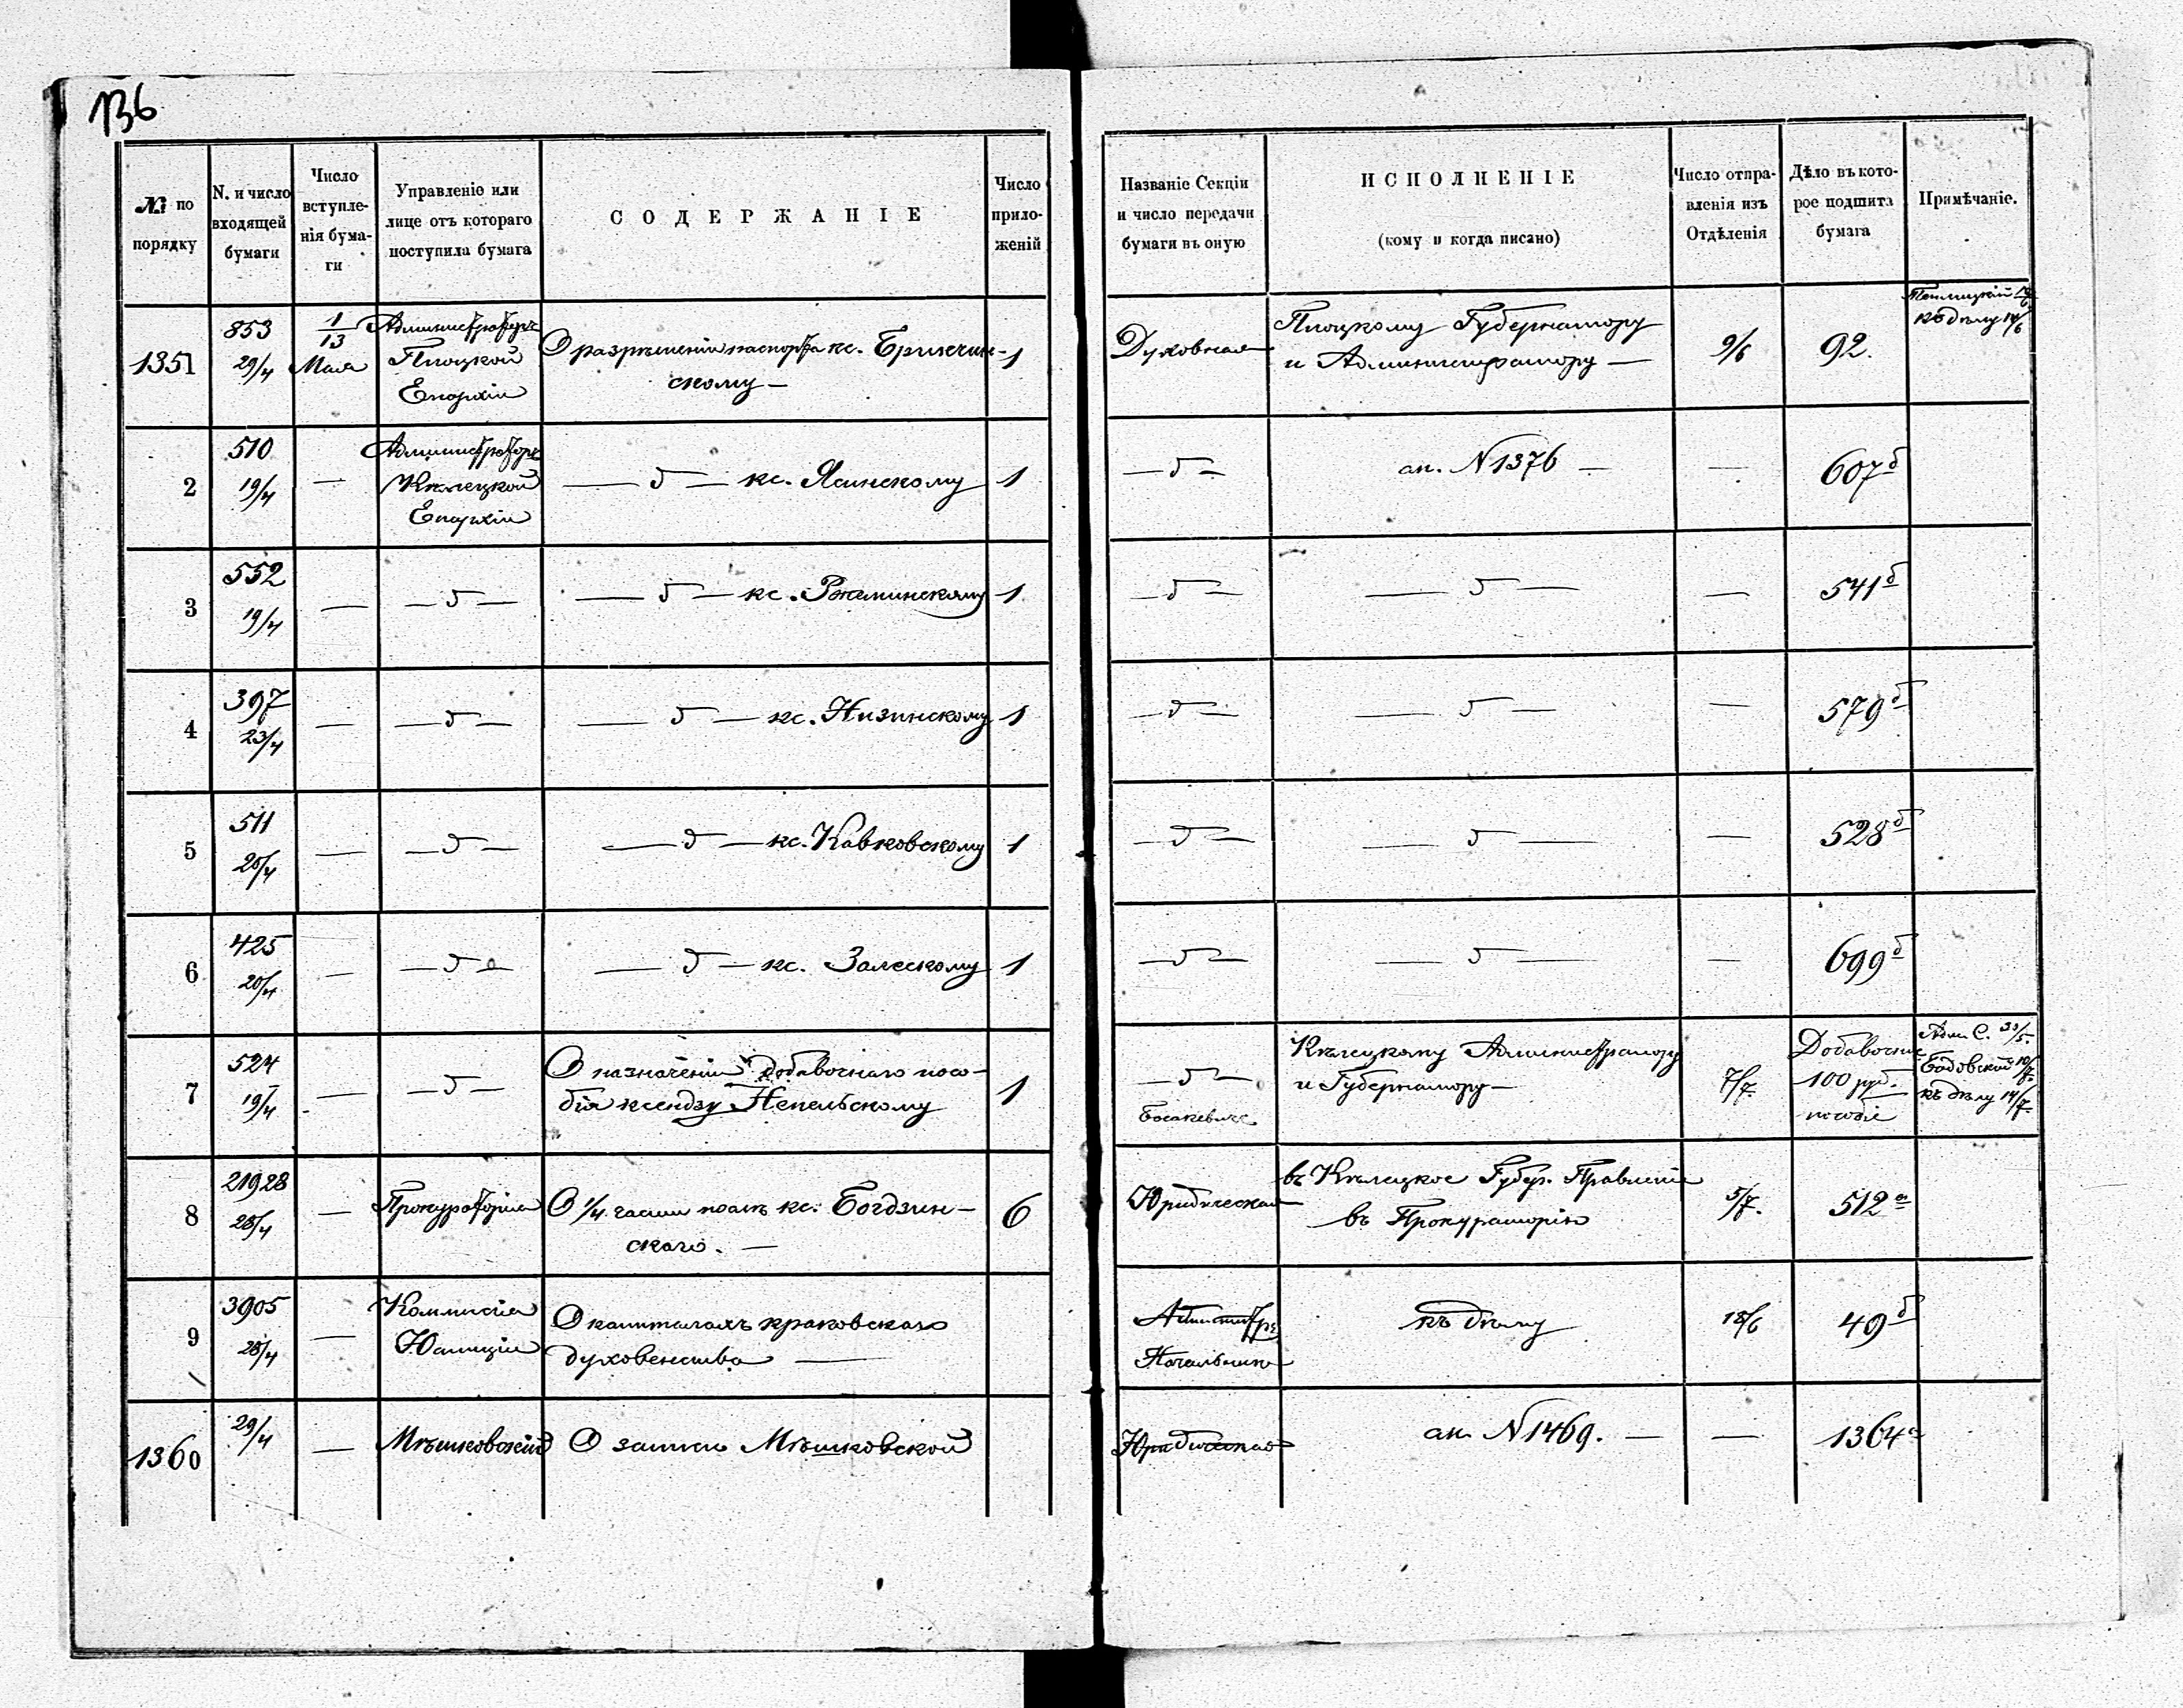 136
№ по порядку
N. и число входящей бумаги
Число вступленія бумаги
Управленіе или лице отъ котораго поступила бумага
СОДЕРЖАНІЕ
Число приложеній
Названіе Секціи и число передачи бумаги въ оную
ИСПОЛНЕНІЕ
(кому и когда писано)
Число отправленія изъ Отдѣленія
Дѣло въ которое подшита бумага
Примѣчаніе.
1351
853
29/4
1/13 Мая
Администраторъ
Плоцкой
Епархіи
О разрѣшеніи паспорта кс.
скому —
1
Духовная
Плоцкому Губернатору
и Администратору —
9/6
92.
къ дѣлу 14/6
2
510
19/4
—
Администраторъ
Кѣлецкой
Епархіи
— д — кс. Ясинскому
1
— д —
ак. N 1376 —
—
607 б
3
552
19/4
—
— д —
— д — кс.
1
— д —
— д —
—
541 б
4
397
23/4
—
— д —
— д — кс. Низинскому
1
— д —
— д —
—
579 б
5
511
20/4
—
— д —
— д — кс. Кавковскому
1
— д —
— д —
—
528 б
6
425
20/4
—
— д —
— д — кс. Залескому
1
— д —
— д —
—
699 б
7
524
19/4
—
— д —
О назначеніи добавочнаго посо-
бія ксендзу Непельскому
1
— д —
Кѣлецкому Администратору
и Губернатору —
7/7
Добавочные
100 руб.
пособіе
къ дѣлу 14/7
8
21928
28/4
—
Прокураторія
О 1/4 части поле кс. Богдзин-
скаго. —
6
Юридическая
въ Кѣлецкое Губер. Правленіе
въ Прокураторію
5/7.
512 а
9
3905
28/4
—
Коммисія
Юстиціи
О капиталахъ краковскаго
духовенства —
къ дѣлу
18/6
49 б
1360
29/4
—
Мѣшковскій
О записи Мѣшковской
Юридическая
ак. N 1469. —
—
1364 а